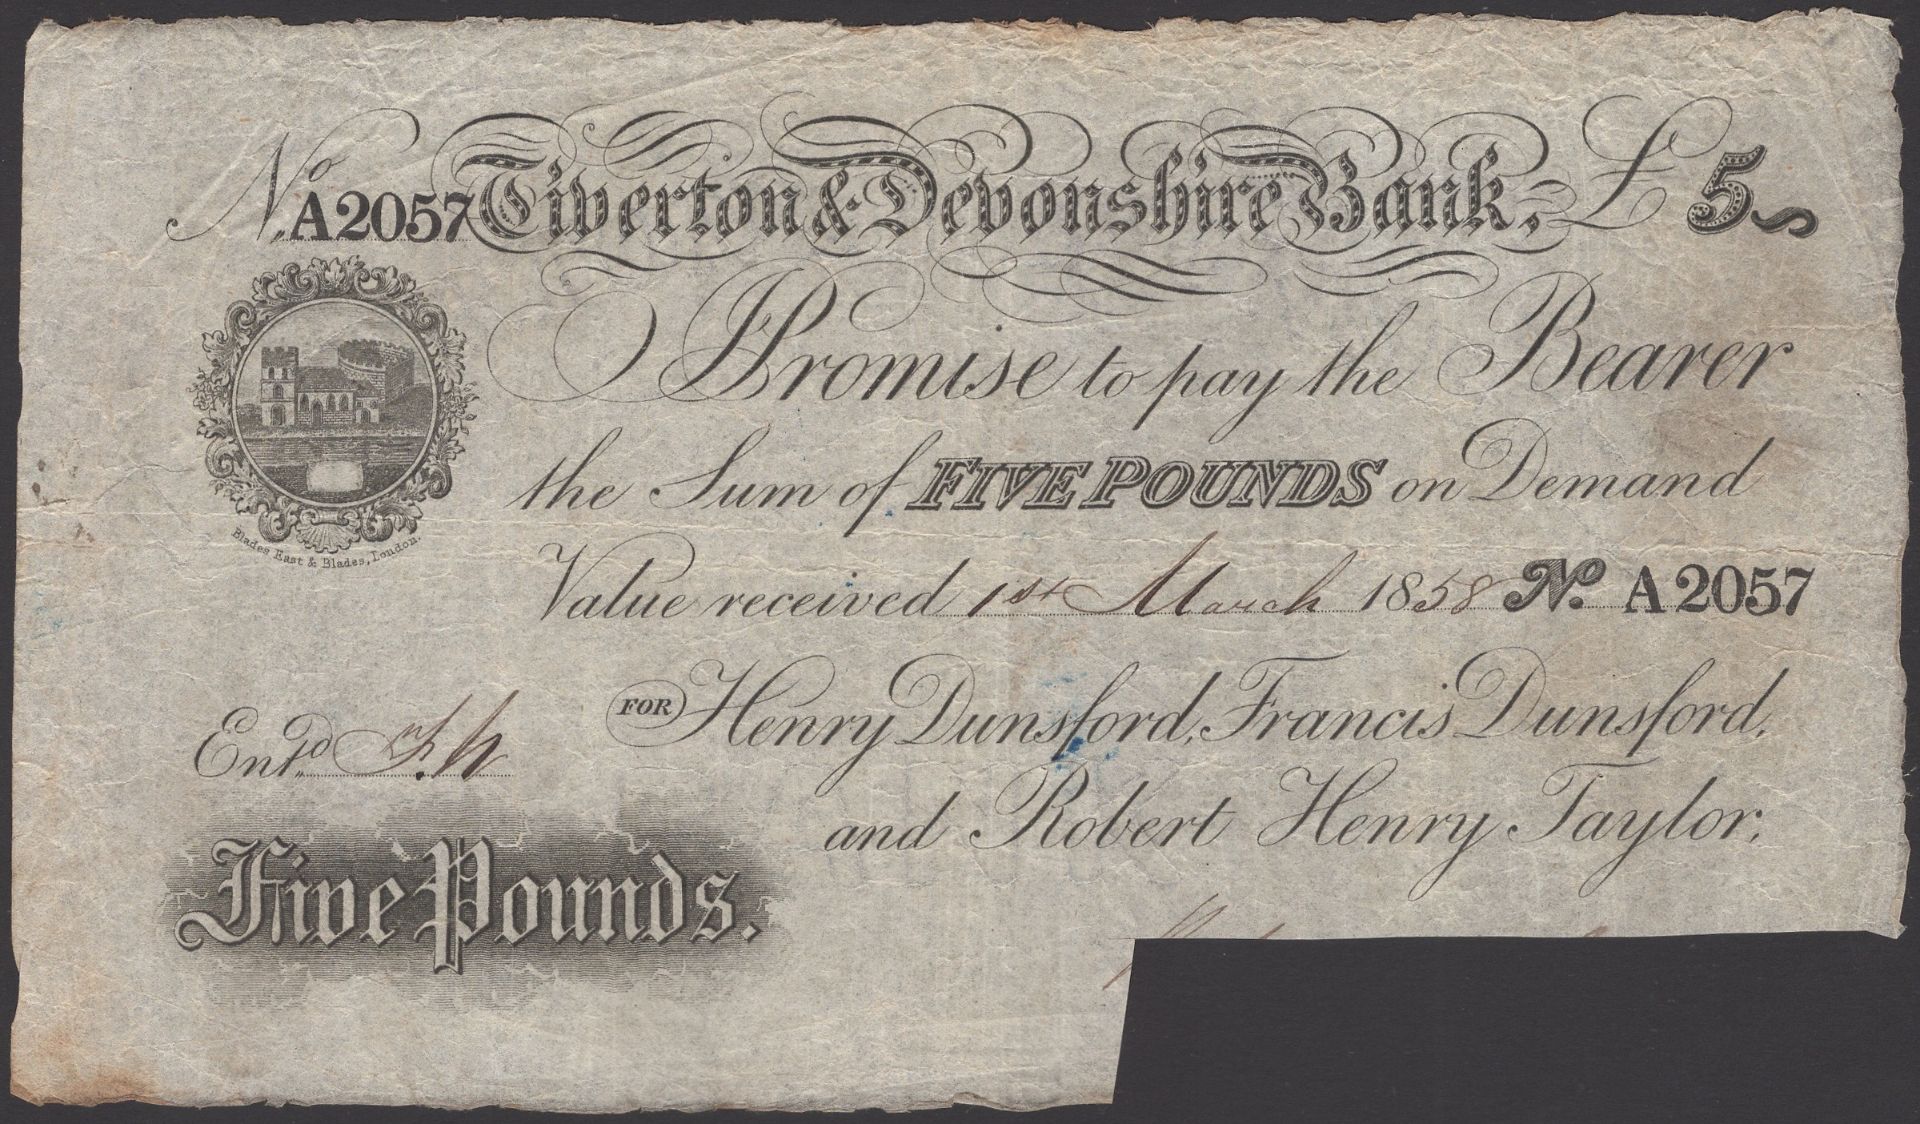 No. A2057 Tiverton & Devonshire Bank, £ 5
I Promise to pay the Bearer
the Sum of FIVE POUNDS on Demand
Blades East & Blades, London.
Value received 1st March 1858 No. A2057
FOR Henry Dunsford, Francis Dunsford,
Entd.
and Robert Henry Taylor.
Five Pounds.